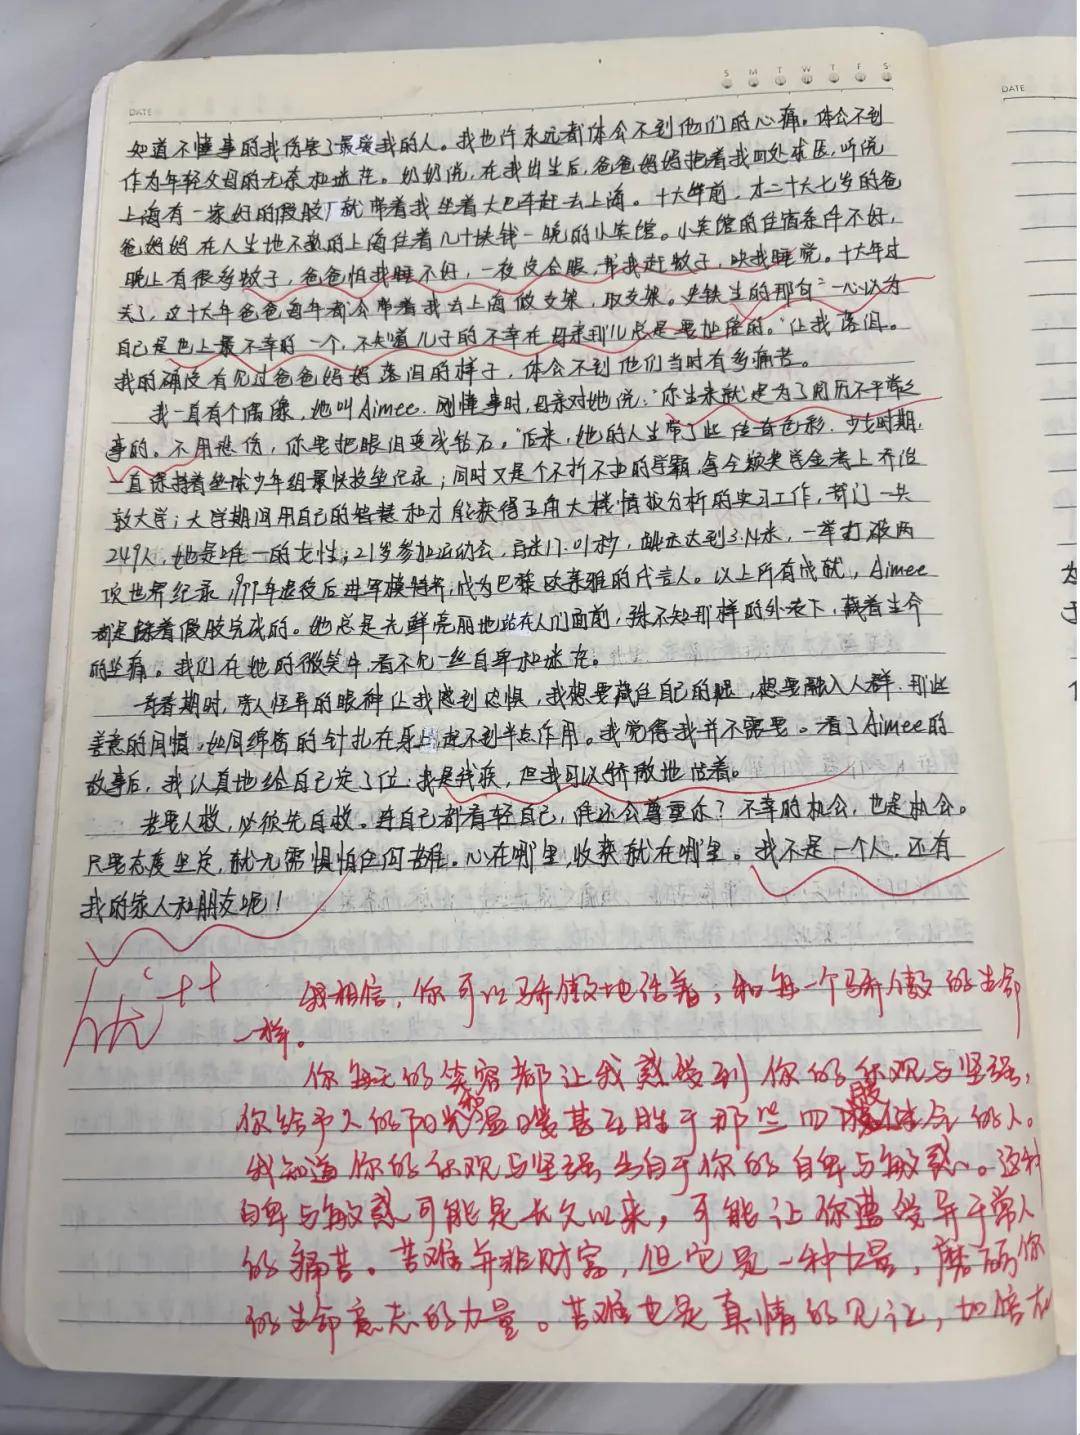 S M T W T F S
DATE
DATE
知道不懂事的我伤害了最爱我的人。我也许永远都体会不到他们的心痛。体会不到
作为年轻父母的无奈和迷茫。奶奶说,在我出生后,爸爸妈妈抱着我四处求医,听说
上海有一家好的假肢厂就带着我坐着大巴车赶去上海。十六年前,才二十六七岁的爸
爸妈妈在人生地不熟的上海住着几十块钱一晚的小宾馆。小宾馆的住宿条件不好,
晚上有很多蚊子,爸爸怕我睡不好,一夜没合眼,帮我赶蚊子,哄我睡觉。十六年过
去了,这十六年爸爸每年都会带着我去上海做支架,取支架。史铁生的那句“一心以为
自己是世上最不幸的一个,不知道儿子的不幸在母亲那儿总是要加倍的。”让我落泪。
我的确没有见过爸爸妈妈落泪的样子,体会不到他们当时有多痛苦。
我一直有个偶像,她叫Aimee.刚懂事时,母亲对她说:“你生来就是为了阅历不平常之
事的。不用悲伤,你要把眼泪变成钻石。”后来,她的人生带了些传奇色彩.少女时期,
一直保持着垒球少年组最快投垒记录;同时又是个不折不扣的学霸,拿全额奖学金考上乔治
敦大学;大学期间用自己的智慧和才能获得五角大楼情报分析的实习工作,部门一共
249人,她是唯一的女性;21岁参加运动会,百米17.01秒,跳远达到3.14米,一举打破两
项世界纪录,退役后进军模特界,成为巴黎欧莱雅的代言人。以上所有成就,Aimee
都是踩着假肢完成的。她总是光鲜亮丽地站在人们面前,殊不知那样的外表下,藏着生命
的坐痛。我们在她的微笑中看不见一丝自卑和迷茫。
青春期时,旁人怪异的眼神让我感到恐惧,我想要藏住自己的腿,想要融入人群.那些
善意的同情,如同绵密的针扎在身上起不到半点作用。我觉得我并不需要。看了Aimee的
故事后,我认真地给自己定了位:我是残疾,但我可以骄傲地活着。
若要人救,必须先自救。连自己都看轻自己,谁还会尊重你?不幸的机会,也是机会。
只要态度坚定,就无需惧怕任何苦难。心在哪里,收获就在哪里。我不是一个人.还有
我的家人和朋友呢!
我相信,你可以骄傲地活着,和每一个骄傲的生命
一样。
你每天的笑容都让我感受到你的乐观与坚强,
你给予人的阳光和温暖甚至胜于那些四肢健全的人。
我知道你的乐观与坚强出自于你的自卑与敏感。这种
自卑与敏感可能是长久以来,可能让你遭受异于常人
的痛苦。苦难并非财富,但它是一种力量,磨砺你
的生命意志的力量。苦难也是真情的见证,加倍